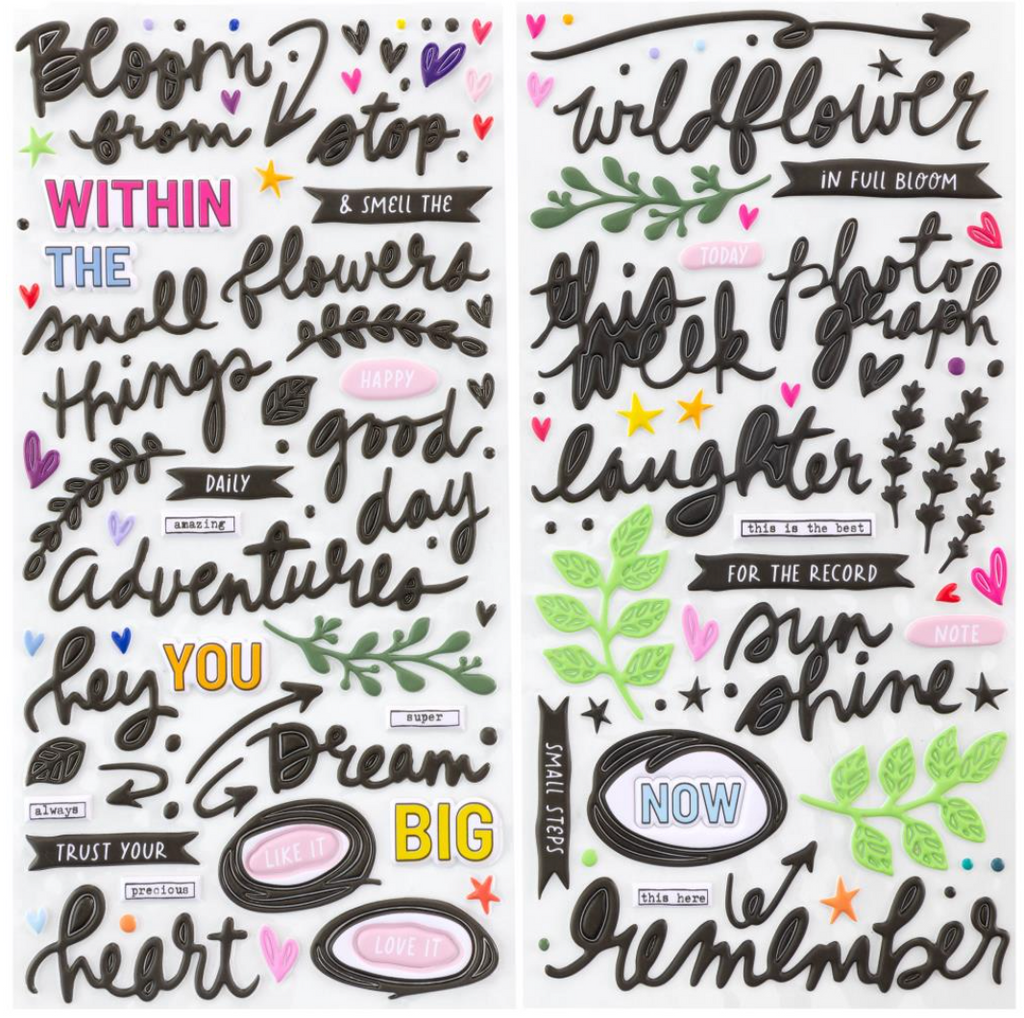 Bloom
from
WITHIN
THE
small
things
stop
& SMELL THE
flowers
HAPPY
good
day
DAILY
amazing
adventures
hey
YOU
super
Dream
BIG
always
TRUST YOUR
precious
heart
LIKE IT
LOVE IT
wildflower
IN FULL BLOOM
TODAY
this
week
photo
graph
laughter
this is the best
FOR THE RECORD
sun
shine
NOTE
SMALL STEPS
NOW
this here
remember